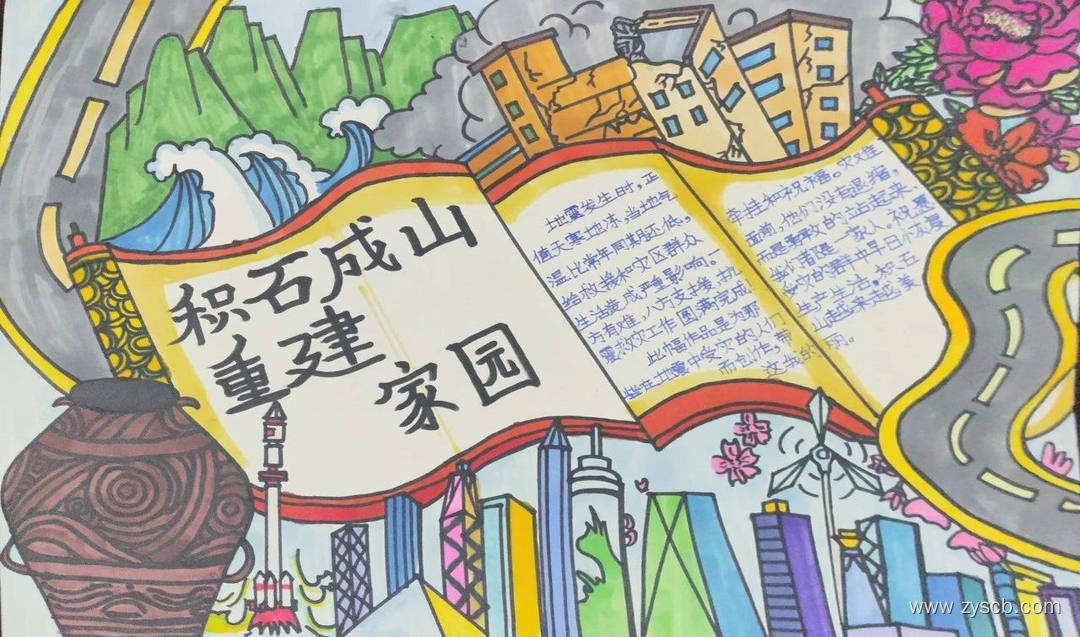 积石成山
重建
家园
地震发生时，正
值天寒地冻，当地气
温比常年同期还低，
给救援和灾区群众
生活造成严重影响。一
方有难，八方支援，抗
震救灾工作圆满完成
此幅作品是为那
些在地震中受灾的人们
而创作，带
这我的
牵挂和祝福。灾难
面前，他们没有退缩，
而是勇敢的站起来，
我们都是一家人。祝愿
受灾的群众早日恢复
生产生活，积石
山越来越美
丽。
www.zyscb.com